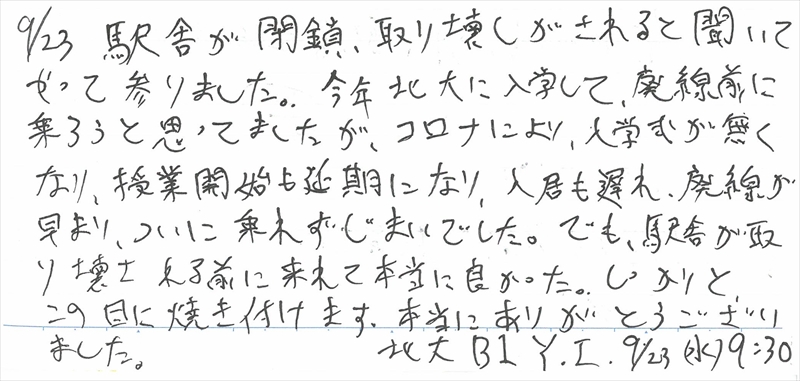 9/23 駅舎が閉鎖、取り壊しがされると聞いて
やって参りました。今年北大に入学して、廃線前に
乗ろうと思ってましたが、コロナにより、入学式が無く
なり、授業開始も延期になり、入居も遅れ、廃線が
早まり、ついに乗れずじまいでした。でも、駅舎が取
り壊される前に来れて本当に良かった。しかりと、
この目に焼き付けます。本当にありがとうござい
ました。 北大 B1 Y.I. 9/23 (水) 9:30